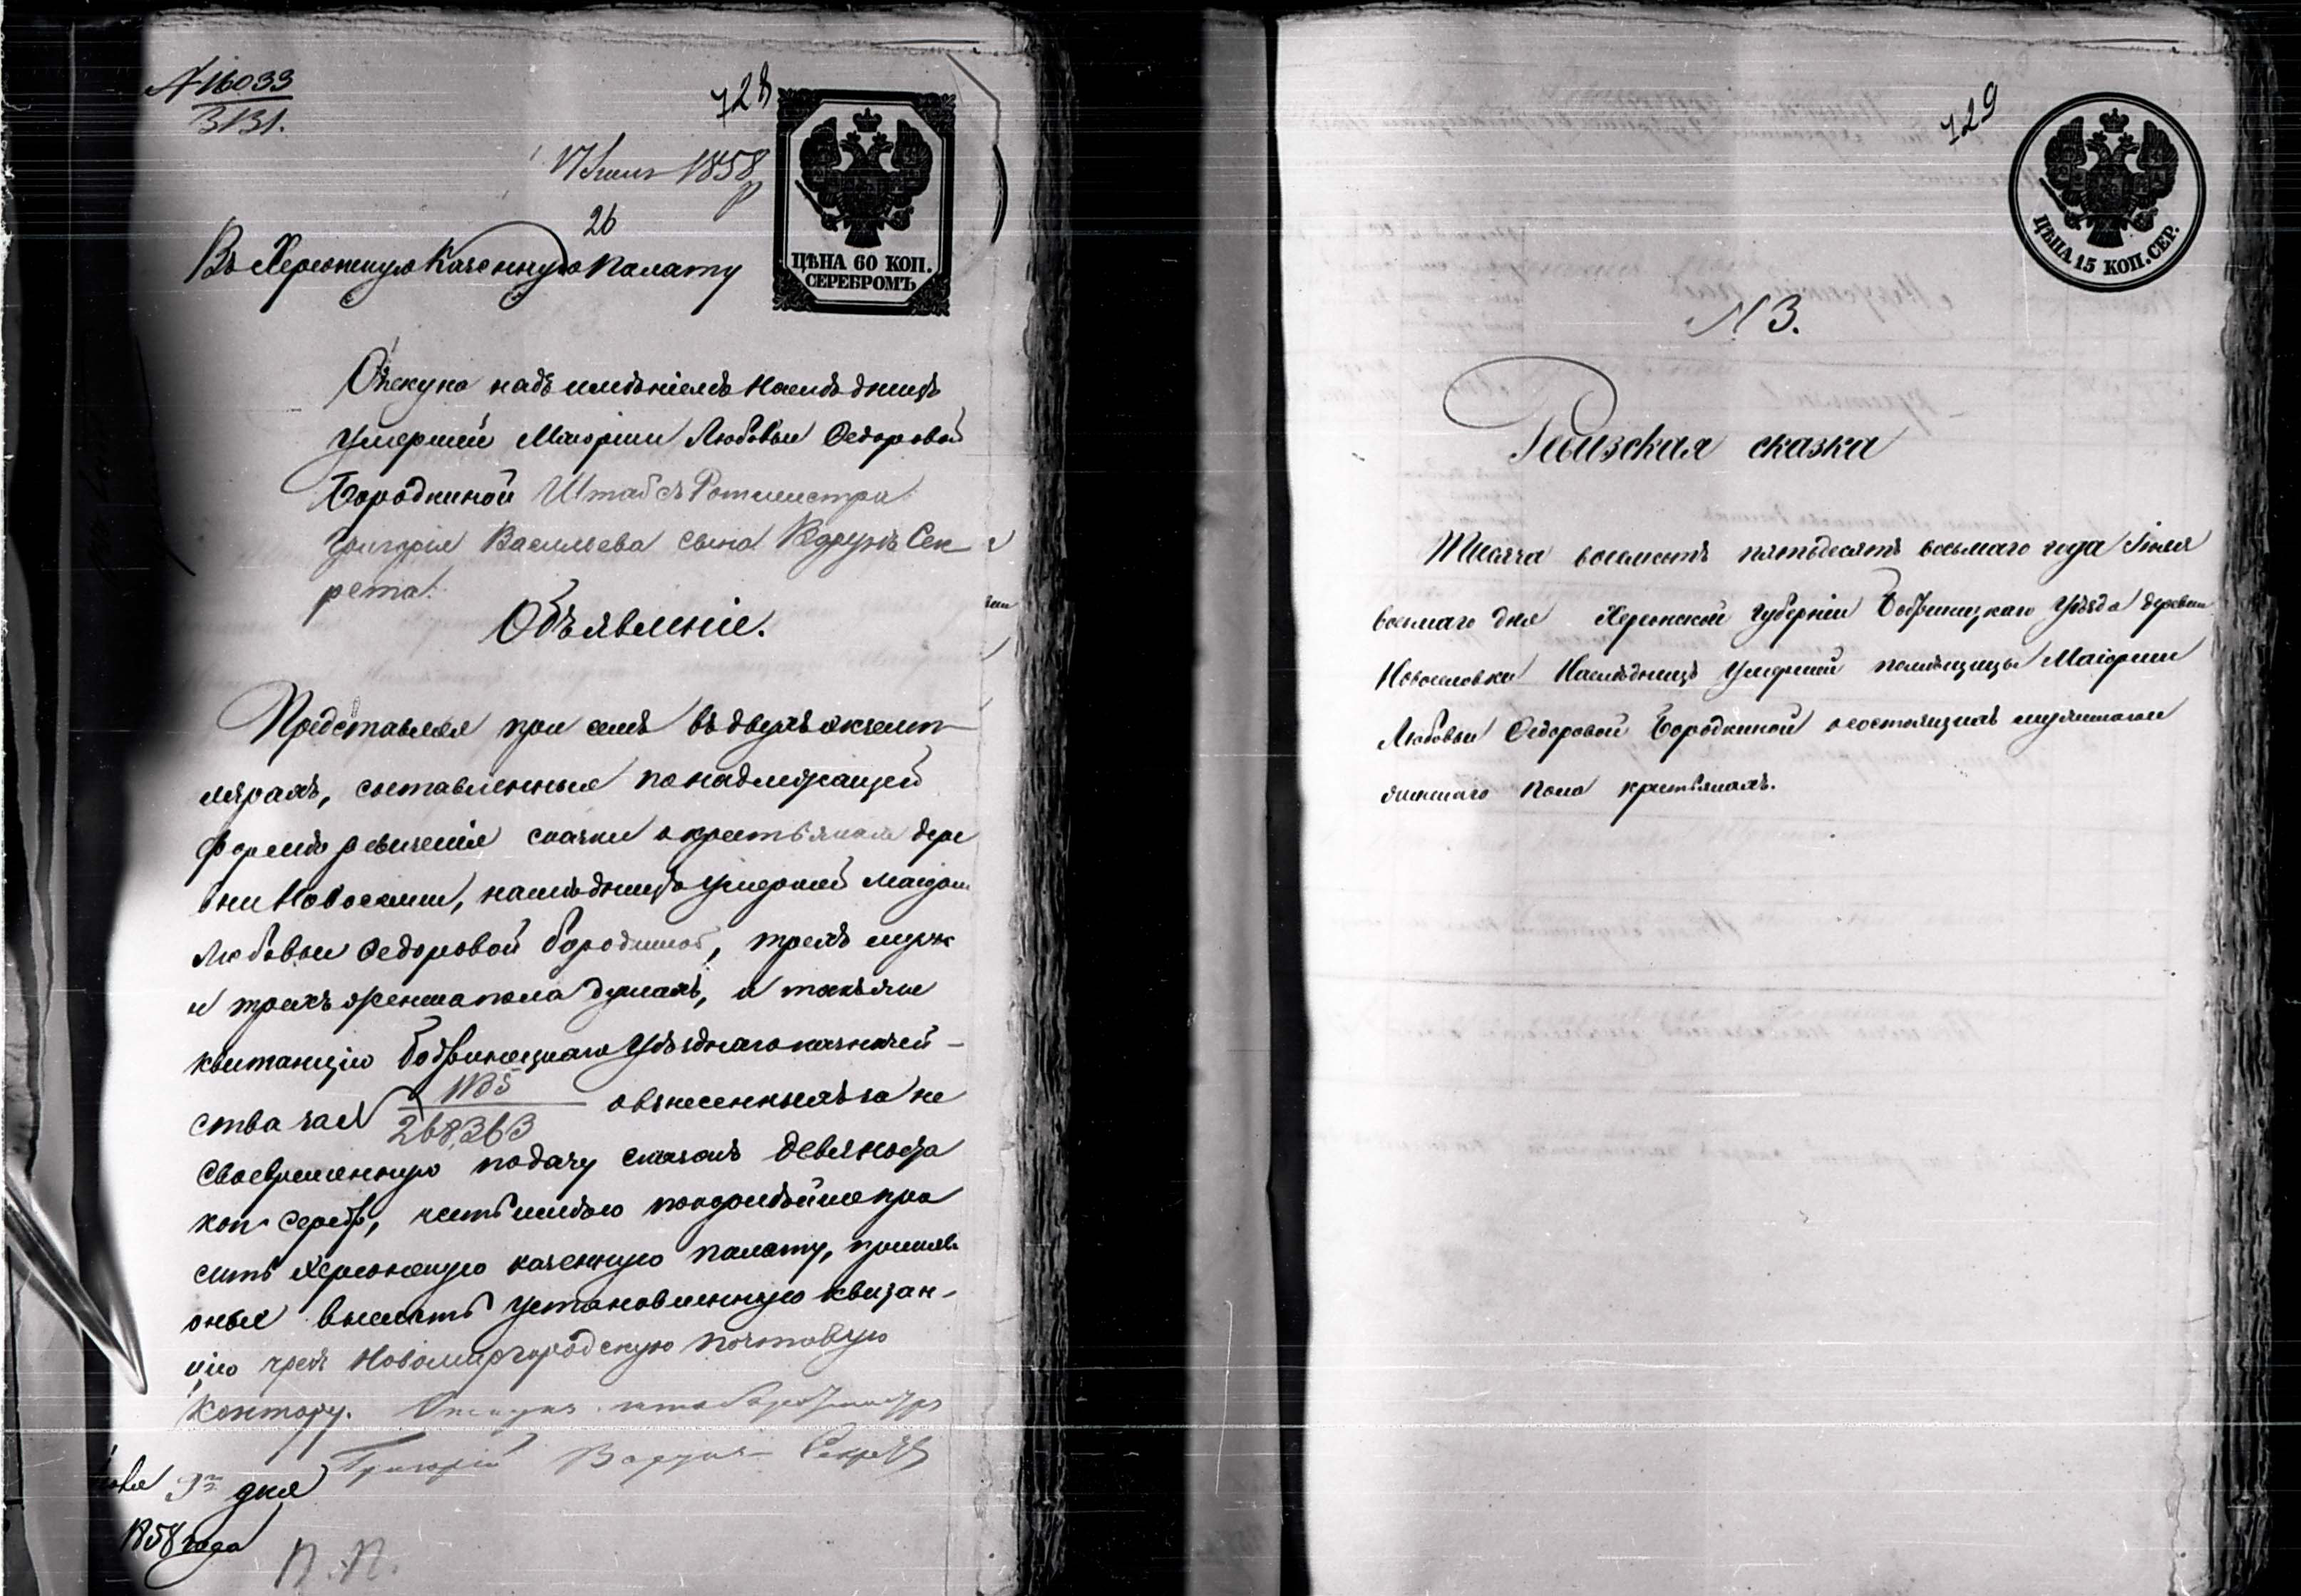 № 16033
3131.
728
17 Июля 1858
26
ЦѢНА 60 КОП.
СЕРЕБРОМЪ
Въ Херсонскую Казенную Палату
Опекуна надъ имѣніемъ Наслѣдницъ
Умершей Маіорши Любовьи Федоровой
Бородкиной Штабсъ Ротмистра
Григорія Васильева сына Сек
рета
Объявленіе.
Представляя при семъ въ двухъ экземп
лярахъ, составленныя по надлежащей
формѣ ревизскія сказки о крестьянахъ дере
вни Новоселки, наслѣдницъ Умершей Маіорши
Любовьи Федоровой Бородкиной, трехъ муж
и трехъ женска пола душахъ, и также
квитанцію Бобринецкаго Уѣзднаго казначей-
ства за № 1135
268,363 о взнесенныхъ за не
своевременную подачу сказокъ девяносто
коп серебр, честь имѣю покорнѣйше про
сить Херсонскую казенную палату, принявъ
оныя выслать установленную квитан-
цію чрезъ Новомиргородскую почтовую
Контору. Опекунъ штабсъ ротмистръ
Григорій
Іюля 9го дня
1858 года
П.П.
729
ЦѢНА 15 КОП. СЕР.
№ 3.
Ревизская сказка
Тысяча восемьсотъ пятьдесятъ восьмаго года Іюля
восьмаго дня Херсонской Губерніи Бобринецкаго Уѣзда деревни
Новоселовки Наслѣдницъ Умершей помѣщицы Маіорши
Любовьи Федоровой Бородкиной о состоящихъ мужескаго и
женскаго пола крестьянахъ.